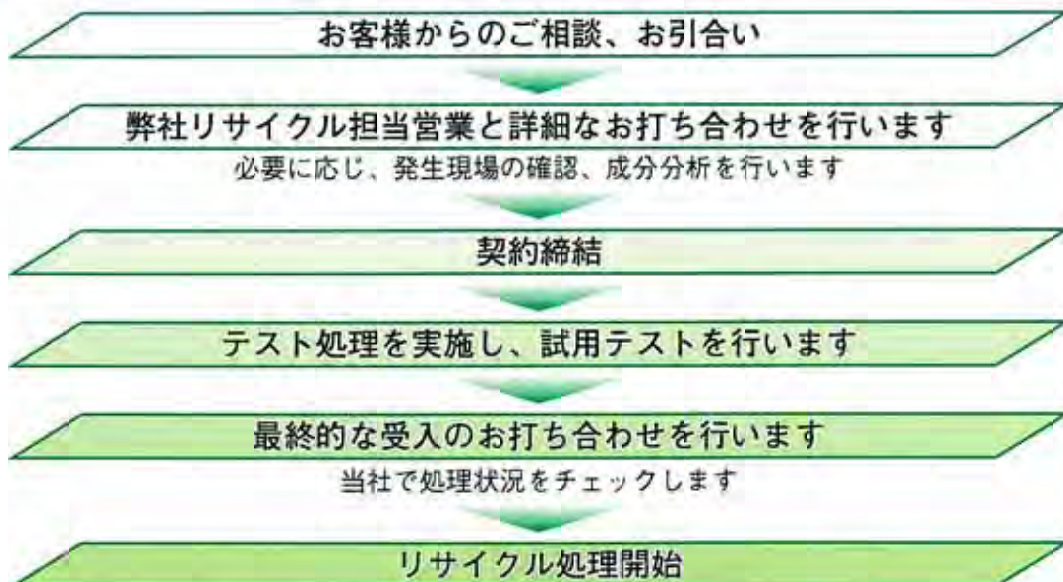 お客様からのご相談、お引合い
弊社リサイクル担当営業と詳細なお打ち合わせを行います
必要に応じ、発生現場の確認、成分分析を行います
契約締結
テスト処理を実施し、試用テストを行います
最終的な受入のお打ち合わせを行います
当社で処理状況をチェックします
リサイクル処理開始